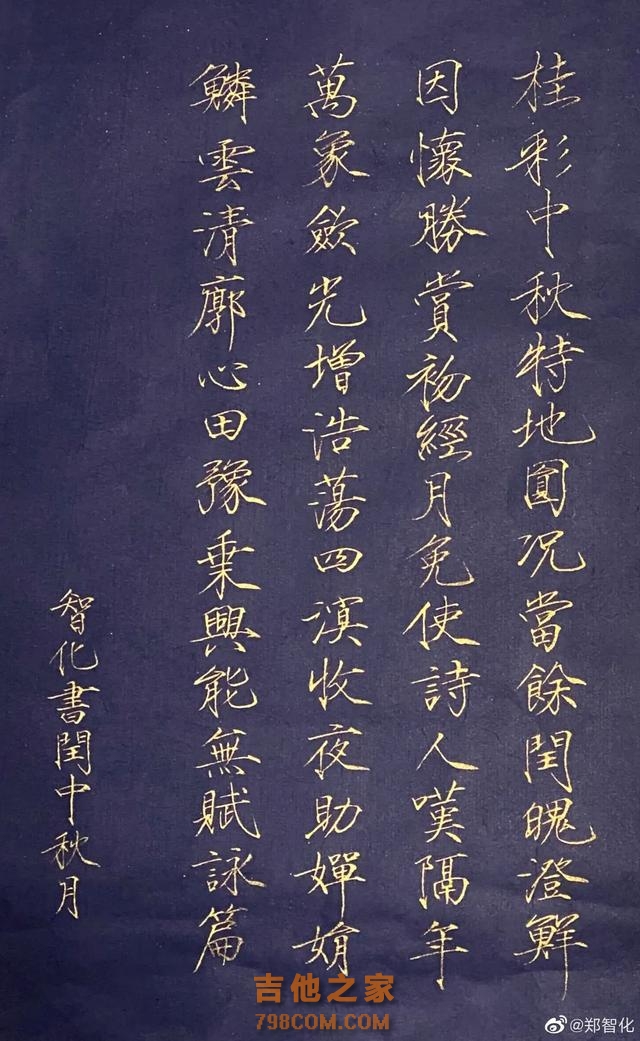 桂彩中秋特地圓況當餘閏魄澄鮮
因懷勝賞初經月免使詩人嘆隔年
萬象斂光增浩蕩四溟收夜助嬋娟
鱗雲清廓心田豫乗興能無賦詠篇
智化書閏中秋月
吉他之家
798COM.COM
@郑智化